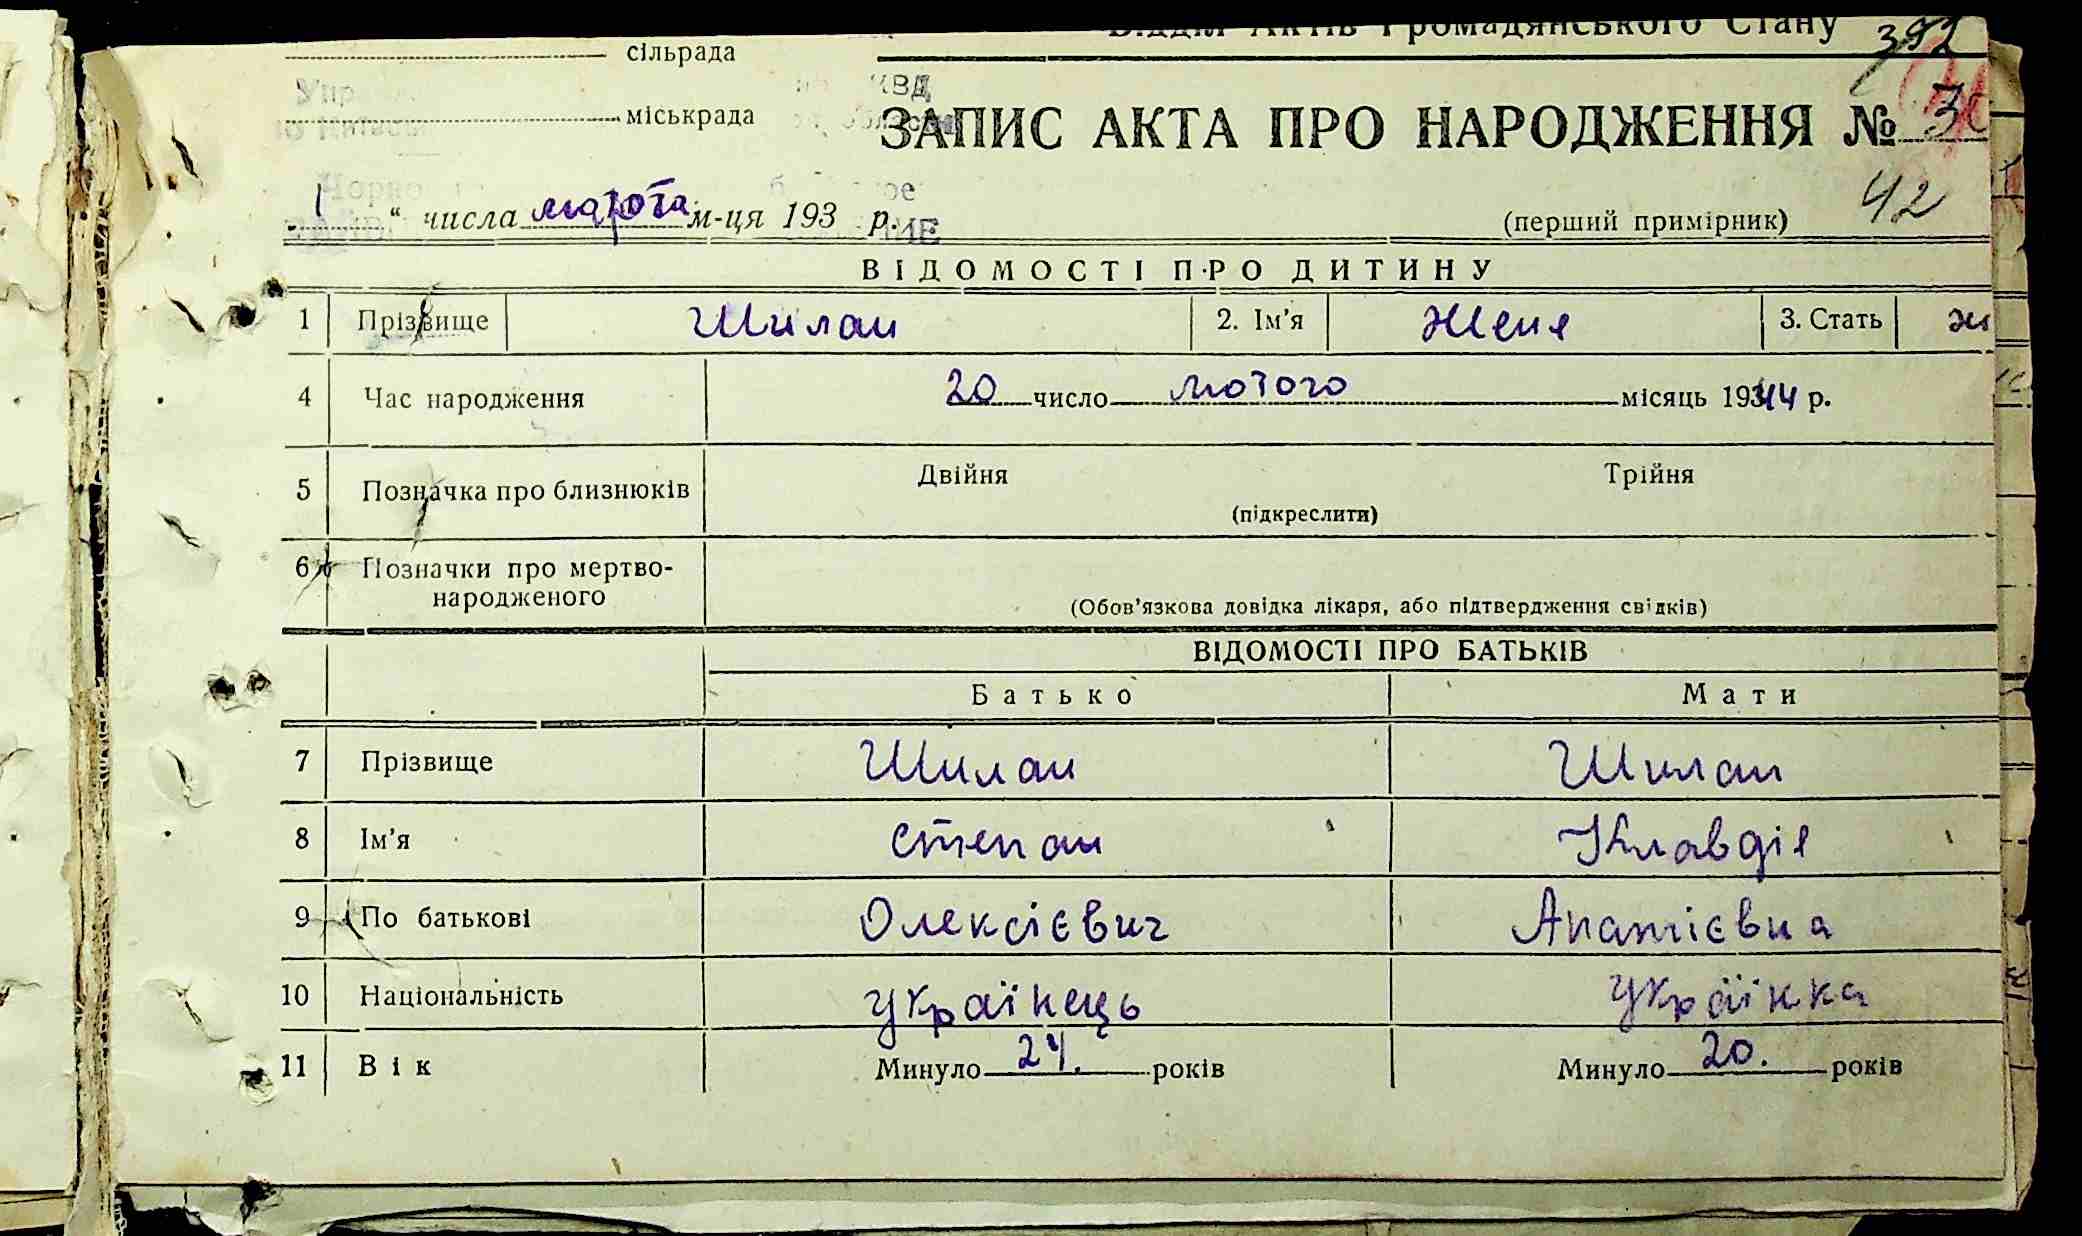 Відділ Актів Громадянського Стану
392
сільрада
міськрада
ЗАПИС АКТА ПРО НАРОДЖЕННЯ №
42
1 " числа марта м-ця 193 р.
(перший примірник)
ВІДОМОСТІ ПРО ДИТИНУ
1 Прізвище Шилан 2. Ім'я Женя 3. Стать ж
4 Час народження 20 число лютого місяць 1944 р.
5 Позначка про близнюків Двійня Трійня
(підкреслити)
6 Позначки про мертво-
народженого
(Обов'язкова довідка лікаря, або підтвердження свідків)
ВІДОМОСТІ ПРО БАТЬКІВ
Батько Мати
7 Прізвище Шилан Шилан
8 Ім'я Степан Клавдія
9 По батькові Олексієвич
10 Національність українець українка
11 Вік Минуло 24. років Минуло 20. років